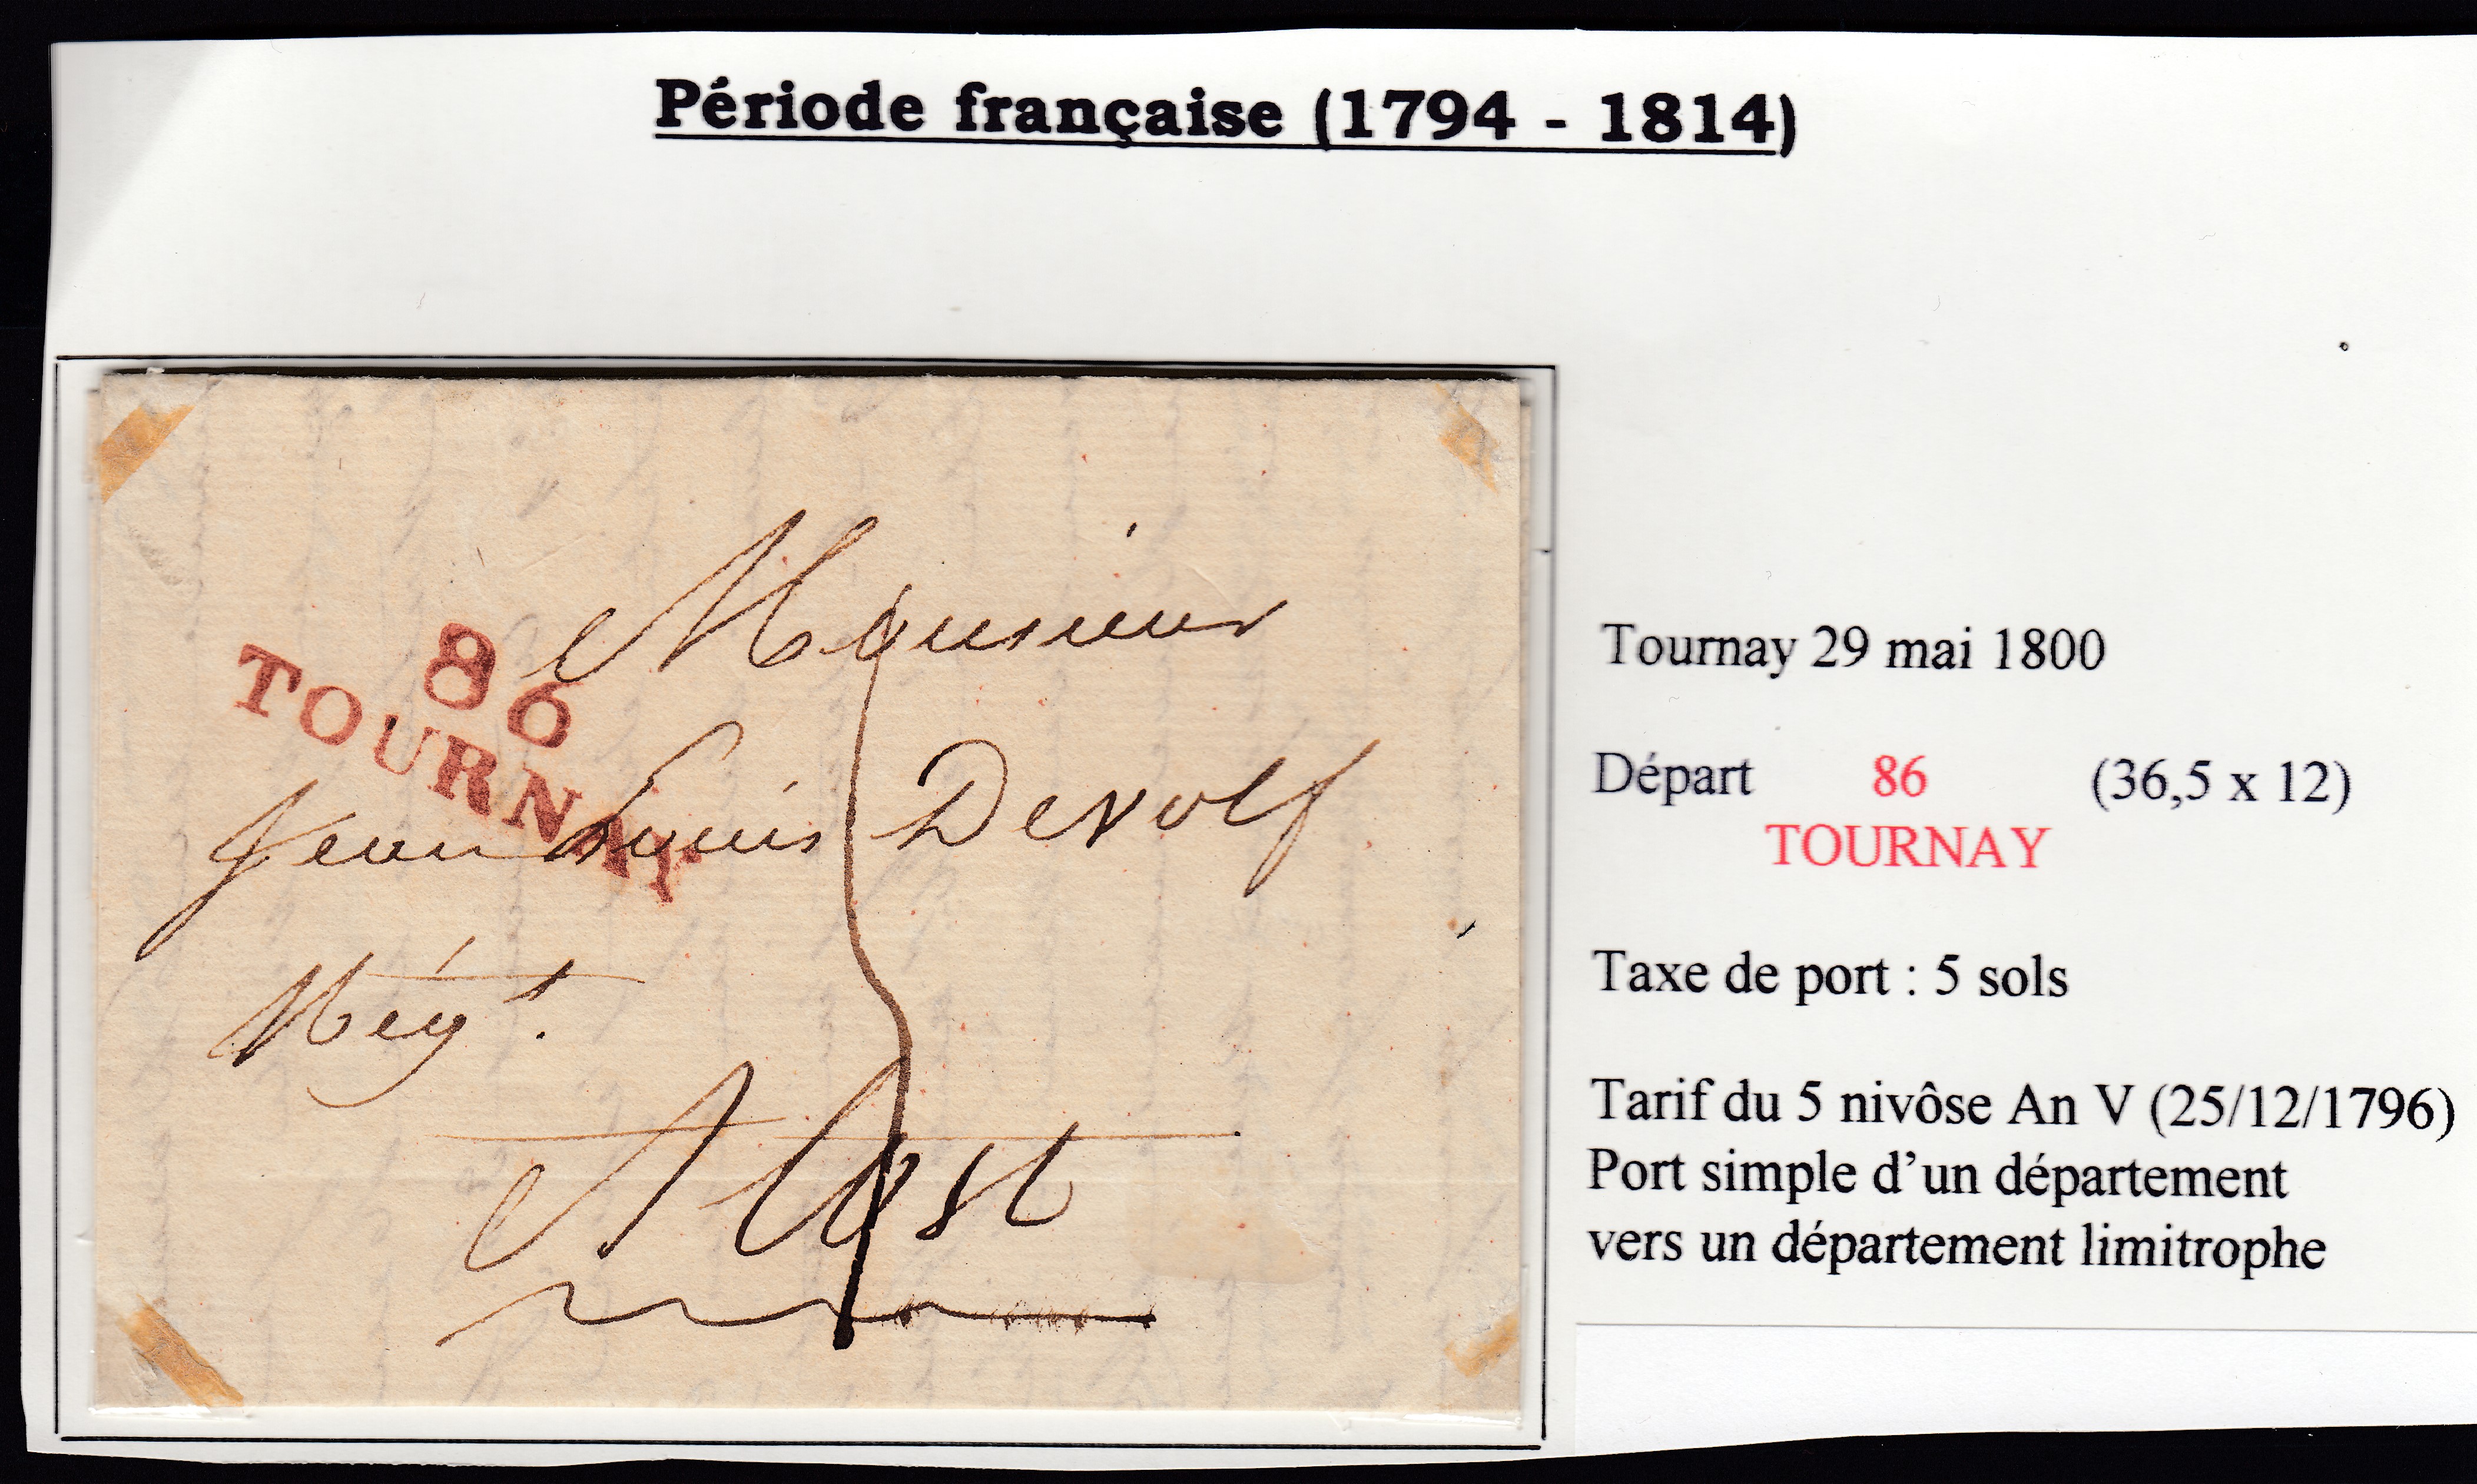 Période française (1794 - 1814)
86
TOURNAY
Monsieur
Jean Louis Devolf
Négt.
Alost
5
Tournay 29 mai 1800
Départ 86 (36,5 x 12)
TOURNAY
Taxe de port : 5 sols
Tarif du 5 nivôse An V (25/12/1796)
Port simple d'un département
vers un département limitrophe